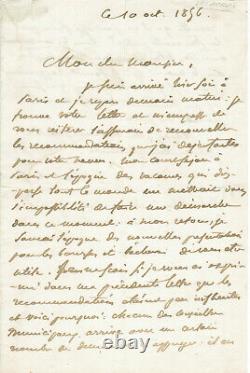 Ce 10 oct. 1856.
Mon cher monsieur,
je suis arrivé hier soir à
Paris et je repars demain matin. je
trouve votre lettre et m'empresse de
vous réitérer l'assurance de renouveller
les recommandations que j'ai déjà faites
pour votre neveu. mon court séjour à
Paris et l'époque des vacances qui dis-
perse tout le monde me mettraient dans
l'impossibilité de faire une démarche
dans ce moment. à mon retour, je
saurai l'époque des nouvelles présentations
pour les bourses et tâcherai de vous être
utile. je vous ai expri-
mé dans une précédente lettre que les
recommandations étaient peu influentes
et voici pourquoi: chacun des conseillers
municipaux, arrive avec un certain
nombre de à appuyer: il en